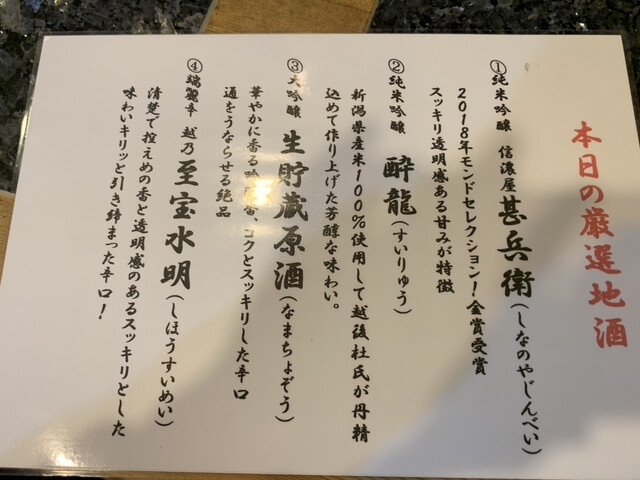 本日の厳選地酒
①純米吟醸 信濃屋 甚兵衛(しなのやじんべい)
2018年モンドセレクション!金賞受賞
スッキリ透明感ある甘みが特徴
②純米吟醸 酔龍(すいりゅう)
新潟県産米100%使用して越後杜氏が丹精
込めて作り上げた芳醇な味わい。
③大吟醸 生貯蔵原酒(なまちょぞう)
華やかに香る吟 香、コクとスッキリした辛口
通をうならせる絶品
④端麗辛 越乃 至宝水明(しほうすいめい)
清楚で控えめの香と透明感のあるスッキリとした
味わいキリッと引き締まった辛口!